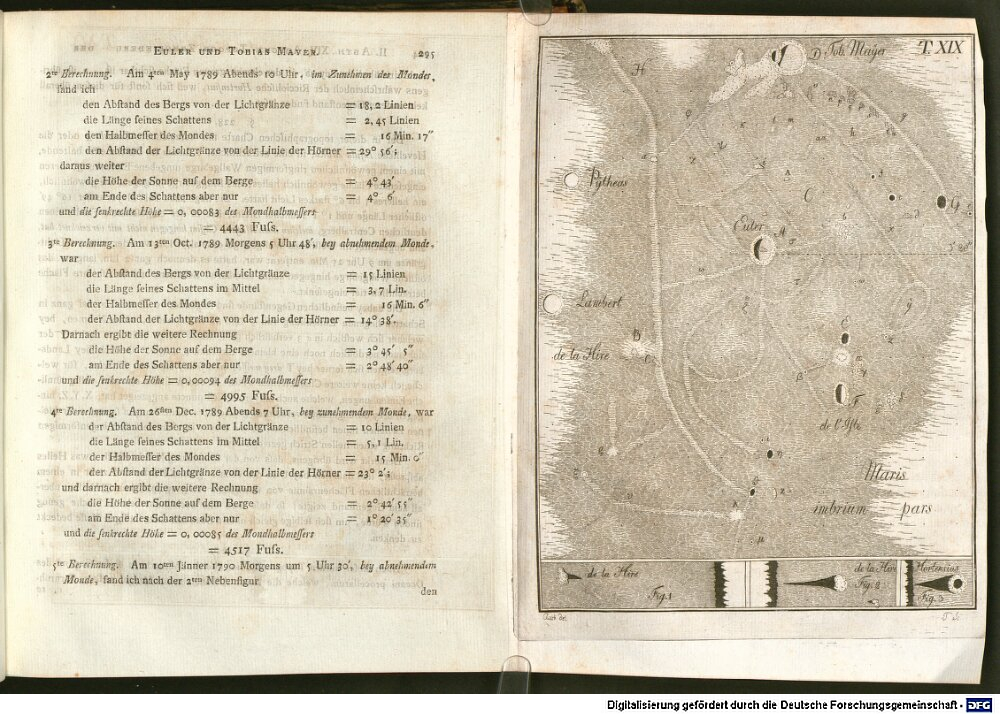 EULER UND TOBIAS MAYER. 295
2te Berechnung. Am 4ten May 1789 Abends 10 Uhr, im Zunehmen des Mondes,
fand ich
den Abſtand des Bergs von der Lichtgränze = 18, 2 Linien
die Länge ſeines Schattens = 2, 45 Linien
den Halbmeſſer des Mondes = 16 Min. 17″
den Abſtand der Lichtgränze von der Linie der Hörner = 29° 56′;
daraus weiter
die Höhe der Sonne auf dem Berge = 4° 43′
am Ende des Schattens aber nur = 4° 6′
und die ſenkrechte Höhe = 0, 00083 des Mondhalbmeſſers
= 4443 Fuſs.
3te Berechnung. Am 13ten Oct. 1789 Morgens 5 Uhr 48′, bey abnehmendem Monde,
war
der Abſtand des Bergs von der Lichtgränze = 15 Linien
die Länge ſeines Schattens im Mittel = 3, 7 Lin.
der Halbmeſſer des Mondes = 16 Min. 6″
der Abſtand der Lichtgränze von der Linie der Hörner = 14° 38′.
Darnach ergibt die weitere Rechnung
die Höhe der Sonne auf dem Berge = 3° 45′ 5″
am Ende des Schattens aber nur = 2° 48′ 40″
und die ſenkrechte Höhe = 0, 00094 des Mondhalbmeſſers
= 4995 Fuſs.
4te Berechnung. Am 26ſten Dec. 1789 Abends 7 Uhr, bey zunehmendem Monde, war
der Abſtand des Bergs von der Lichtgränze = 10 Linien
die Länge ſeines Schattens im Mittel = 5, 1 Lin.
der Halbmeſſer des Mondes = 15 Min. 0″
der Abſtand der Lichtgränze von der Linie der Hörner = 23° 2′;
und darnach ergibt die weitere Rechnung
die Höhe der Sonne auf dem Berge = 2° 42′ 55″
am Ende des Schattens aber nur = 1° 20′ 35″
und die ſenkrechte Höhe = 0, 00085 des Mondhalbmeſſers
= 4517 Fuſs.
5te Berechnung. Am 10ten Jänner 1790 Morgens um 5 Uhr 30′, bey abnehmendem
Monde, fand ich nach der 2ten Nebenfigur
den
T. XIX
D Tob. Mayer
H
Pytheas
C
G
Euler
A
Lambert
B
de la Hire
C
E
F
de l'Isle
Maris
imbrium pars
de la Hire
Fig. 1
de la Hire
Fig. 2
Hortensius
Fig. 3
Digitalisierung gefördert durch die Deutsche Forschungsgemeinschaft - DFG